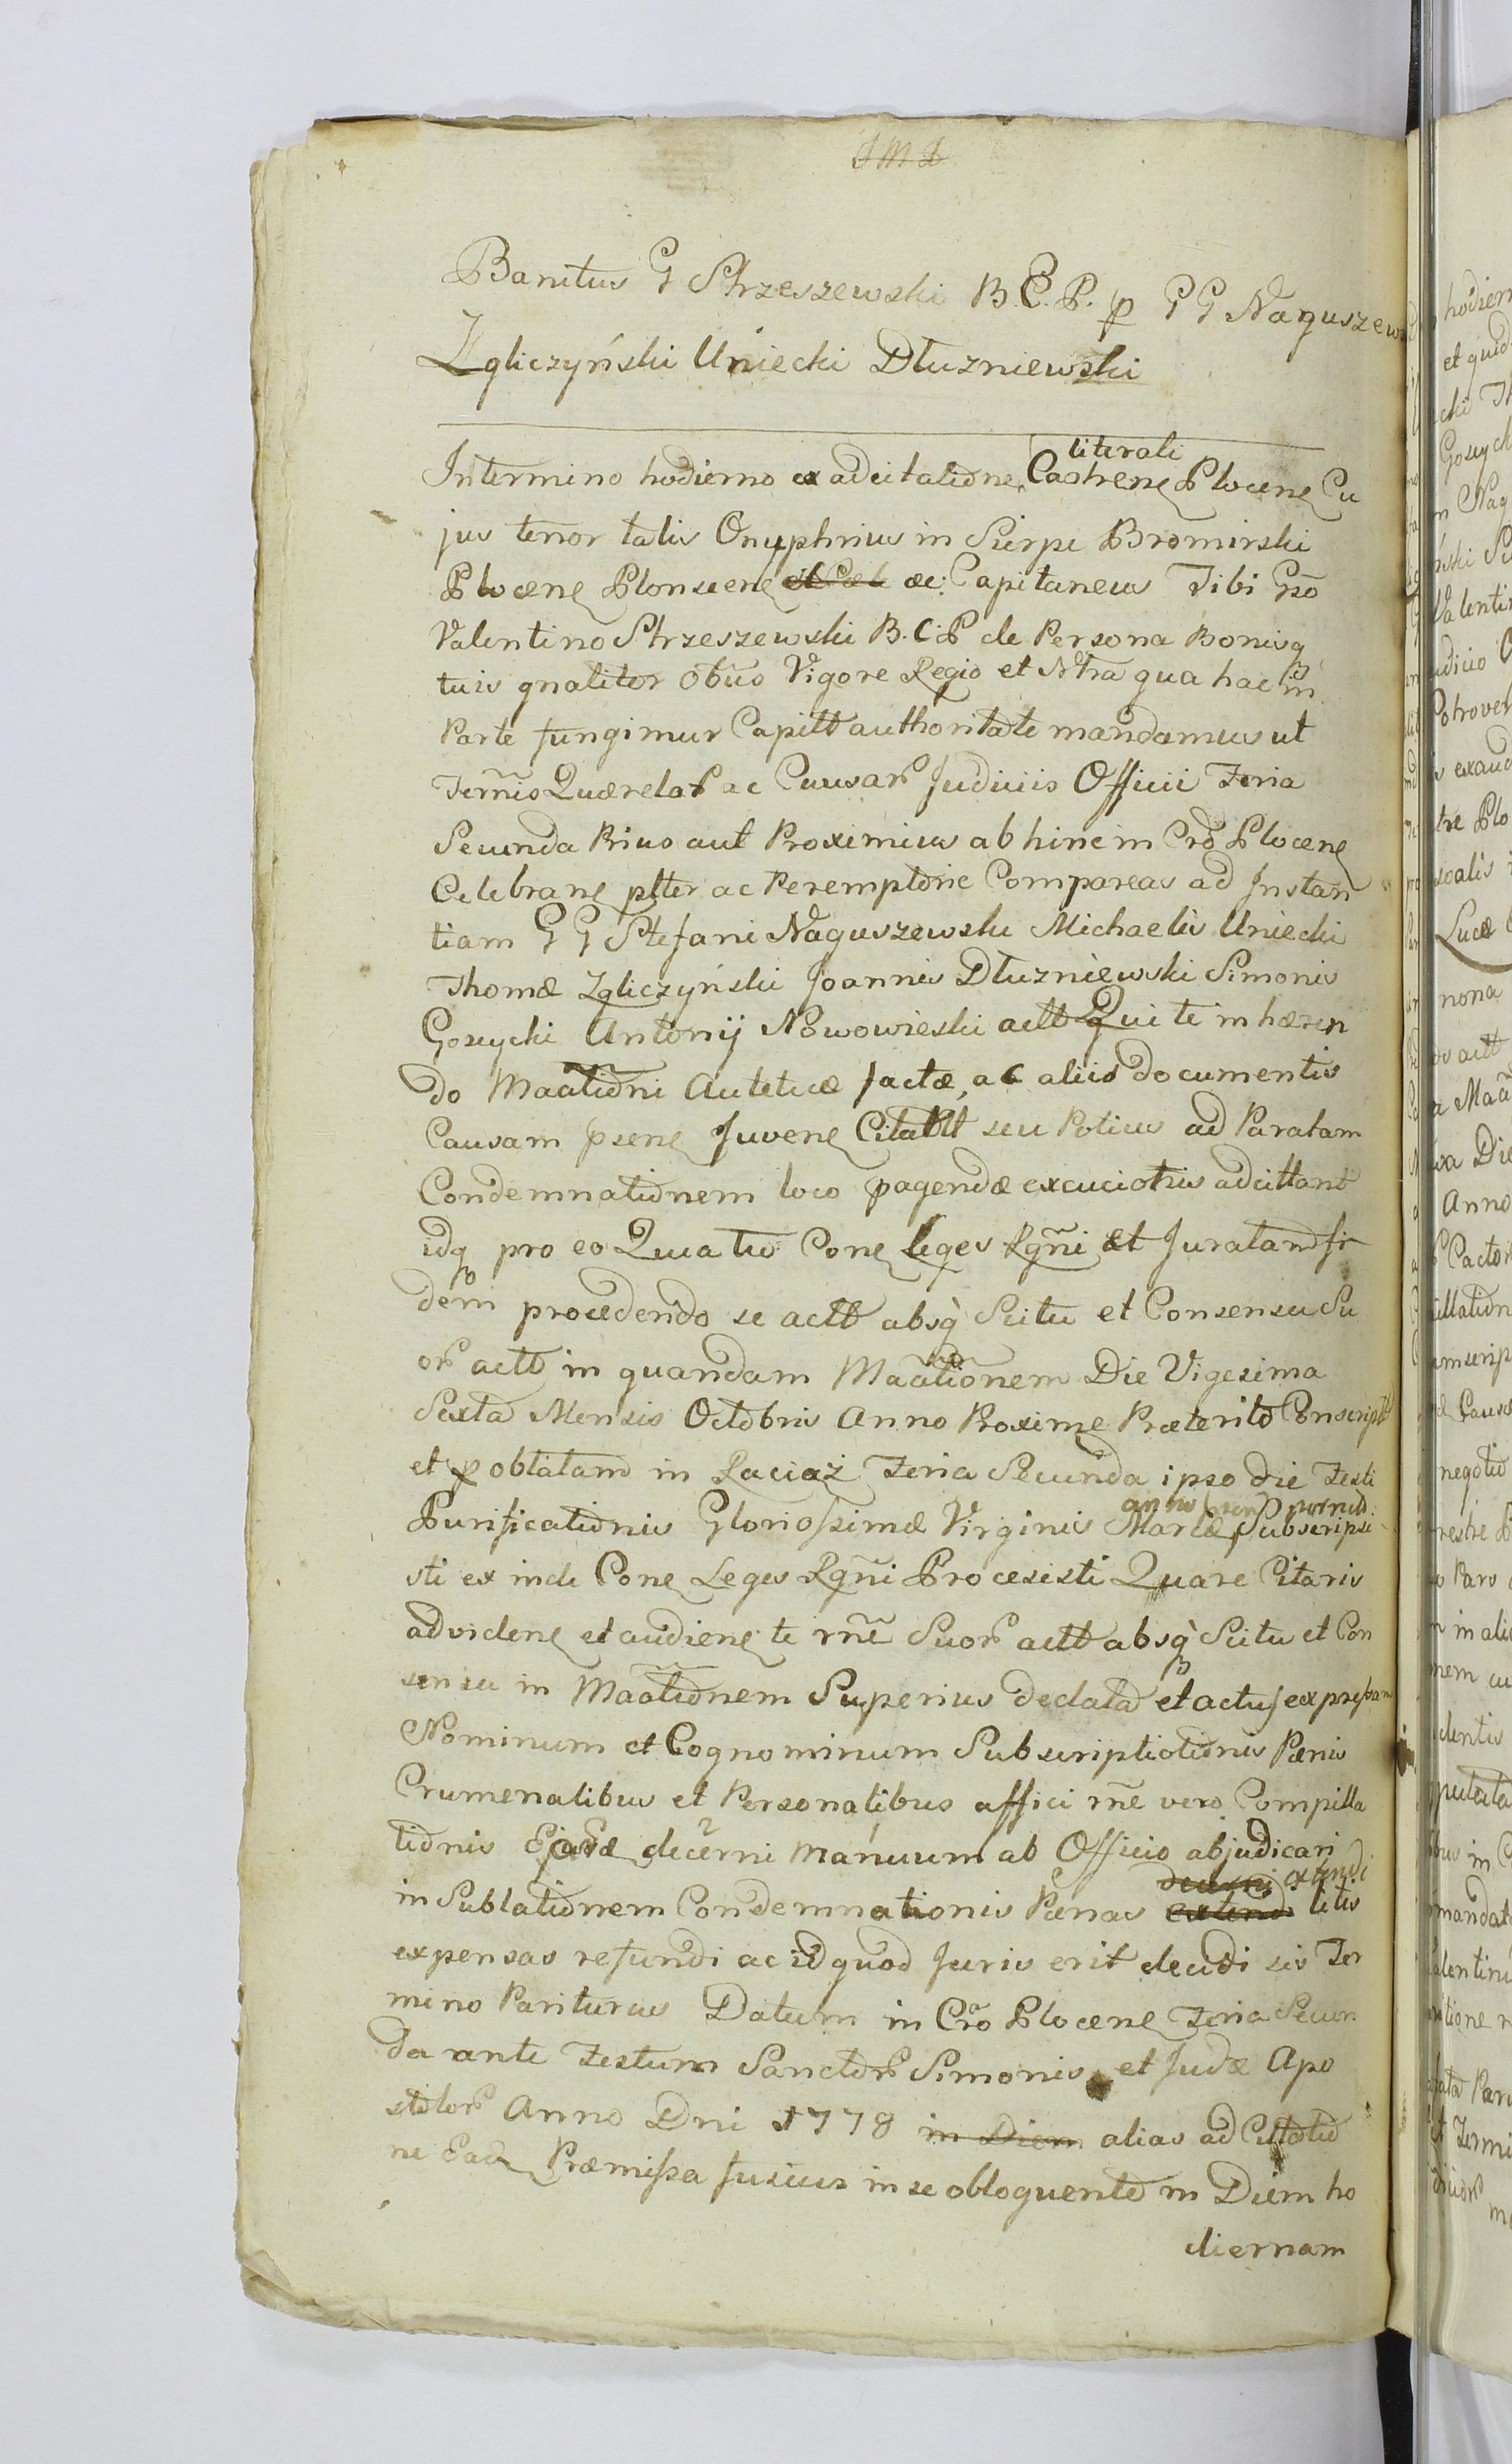 J M J
Banitus G Strzeszewski B. C. P. p GG Naguszew
Zgliczyński Uniecki Dłuzniewski
In termino hodierno ex adcitatione literali Castrenẹ Plocenẹ Cu
jus tenor talis Onuphrius in Sierpc Bromirski
Plocenẹ Plonscenẹ ac: Capitaneus Tibi Gso
Valentino Strzeszewski B. C. P de Persona Bonisq
tuis gnaliter obus Vigore Regio et Ntra qua hac in
Parte fungimur Capitt authoritate mandamus ut
Termis Quærelar ac Causar Judiciis Officii Feria
Secunda Prius aut Proximius ab hinc in Cro Plocenẹ
Celebranẹ ptter ac Peremptorie Compareas ad Instan
tiam GG Stefani Naguszewski Michaelis Uniecki
Thomæ Zgliczyński Joannis Dłuzniewski Simonis
Gosycki Antonij Nowowieski actt Qui te in hæren
do Maationi Auteticæ factæ, ac aliis documentis
Causam psenẹ Juvenẹ Citatt seu Potius ad Paratam
Condemnationem loco pagendæ adcittant
idq pro eo Quia tu Conẹ Leges Rgñi et Juratam fi
dem procedendo se actt absq Scitu et Consensu Su
or actt in quandam Maationem Die Vigesima
Sexta Mensis Octobris Anno Proxime Præterito Conscript
et p oblatam in Raciąż Feria Secunda ipso die Festi
Purificationis Gloriossimæ Virginis Mariæ anno Subscripsi
sti ex inde Conẹ Leges Rgñi Procesisti Quare Citaris
ad videnẹ et audienẹ te rñe Suor actt absq Scitu et Con
sensu in Maationem Superius declata et actus expressam
Nominum et Cognominum Subscriptiotionis Pænis
Crumenalibus et Personalibus affici rñe vero Compilla
tionis Ejusdæ decerni manuum ab Officio abjudicari
in Sublationem Condemnationis Pænas decerni extend extendi litis
expensas refundi ac id quod Juris erit decidi sis Ter
mino Pariturus Datum in Cro Plocenẹ Feria Secun
da ante Festum Sanctor Simonis et Judæ Apo
stolor Anno Dni 1778 in Diem alias ad Cittatio
ne Eadẹ Præmissa fusius in se obloquente in Diem ho
diernam